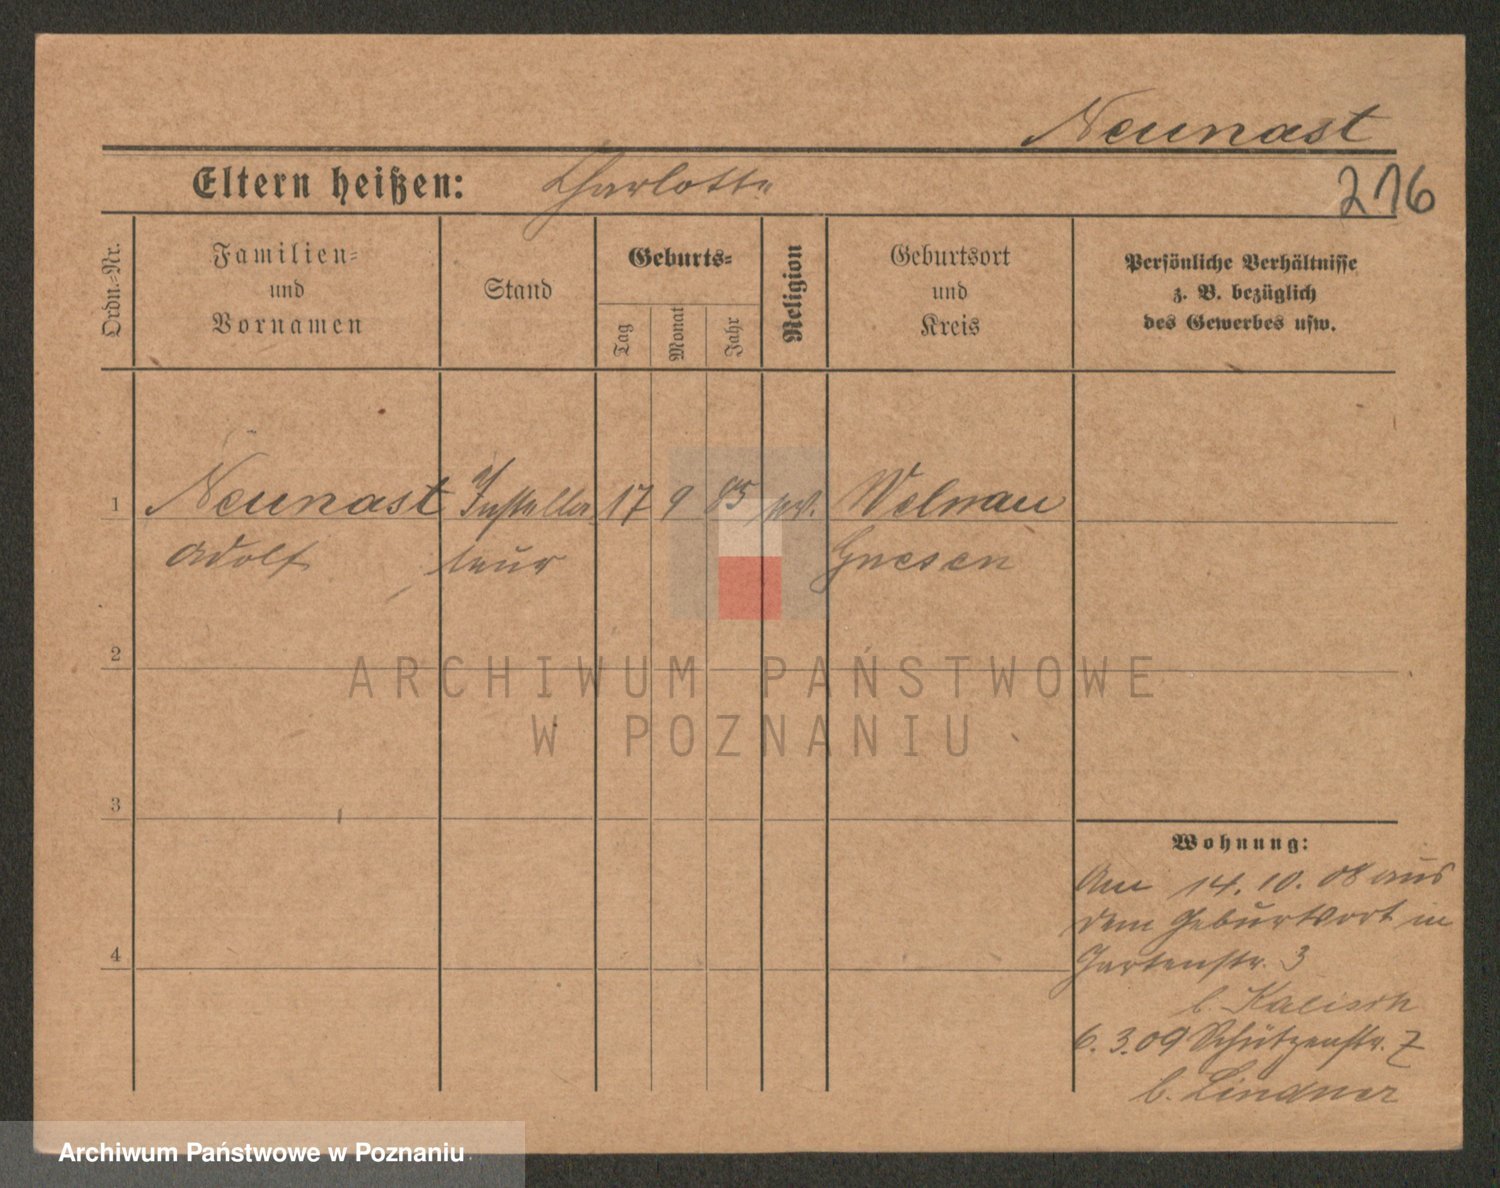 Neunast
Eltern heißen: Charlotte
216
Ordn.-Nr.
Familien-
und
Vornamen
Stand
Geburts-
Tag
Monat
Jahr
Religion
Geburtsort
und
Kreis
Persönliche Verhältnisse
z. B. bezüglich
des Gewerbes usw.
1 Neunast Installa 17 9 85 Welnau
Adolf teur Gnesen
2
3
4
Wohnung:
Am 14.10.08 aus
dem Geburtsort in
Gartenstr. 3
b. Kalisch
6.3.09 Schützenstr. 7
b. Lindner
ARCHIWUM PAŃSTWOWE
W POZNANIU
Archiwum Państwowe w Poznaniu